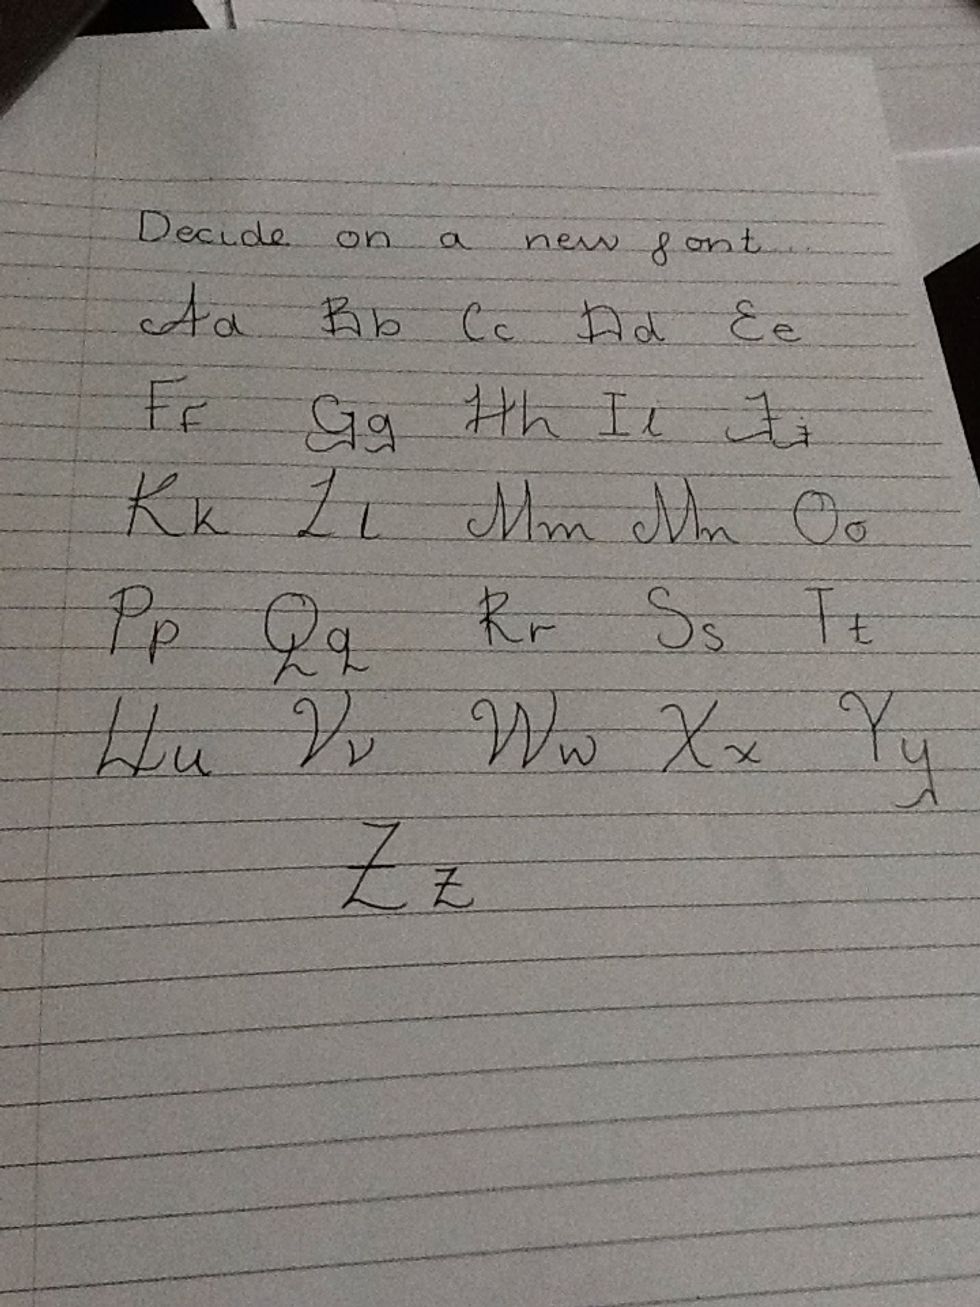 Decide on a new font...
Aa Bb Cc Dd Ee
Ff Gg Hh Ii Jj
Kk Ll Mm Nn Oo
Pp Qq Rr Ss Tt
Uu Vv Ww Xx Yy
Zz